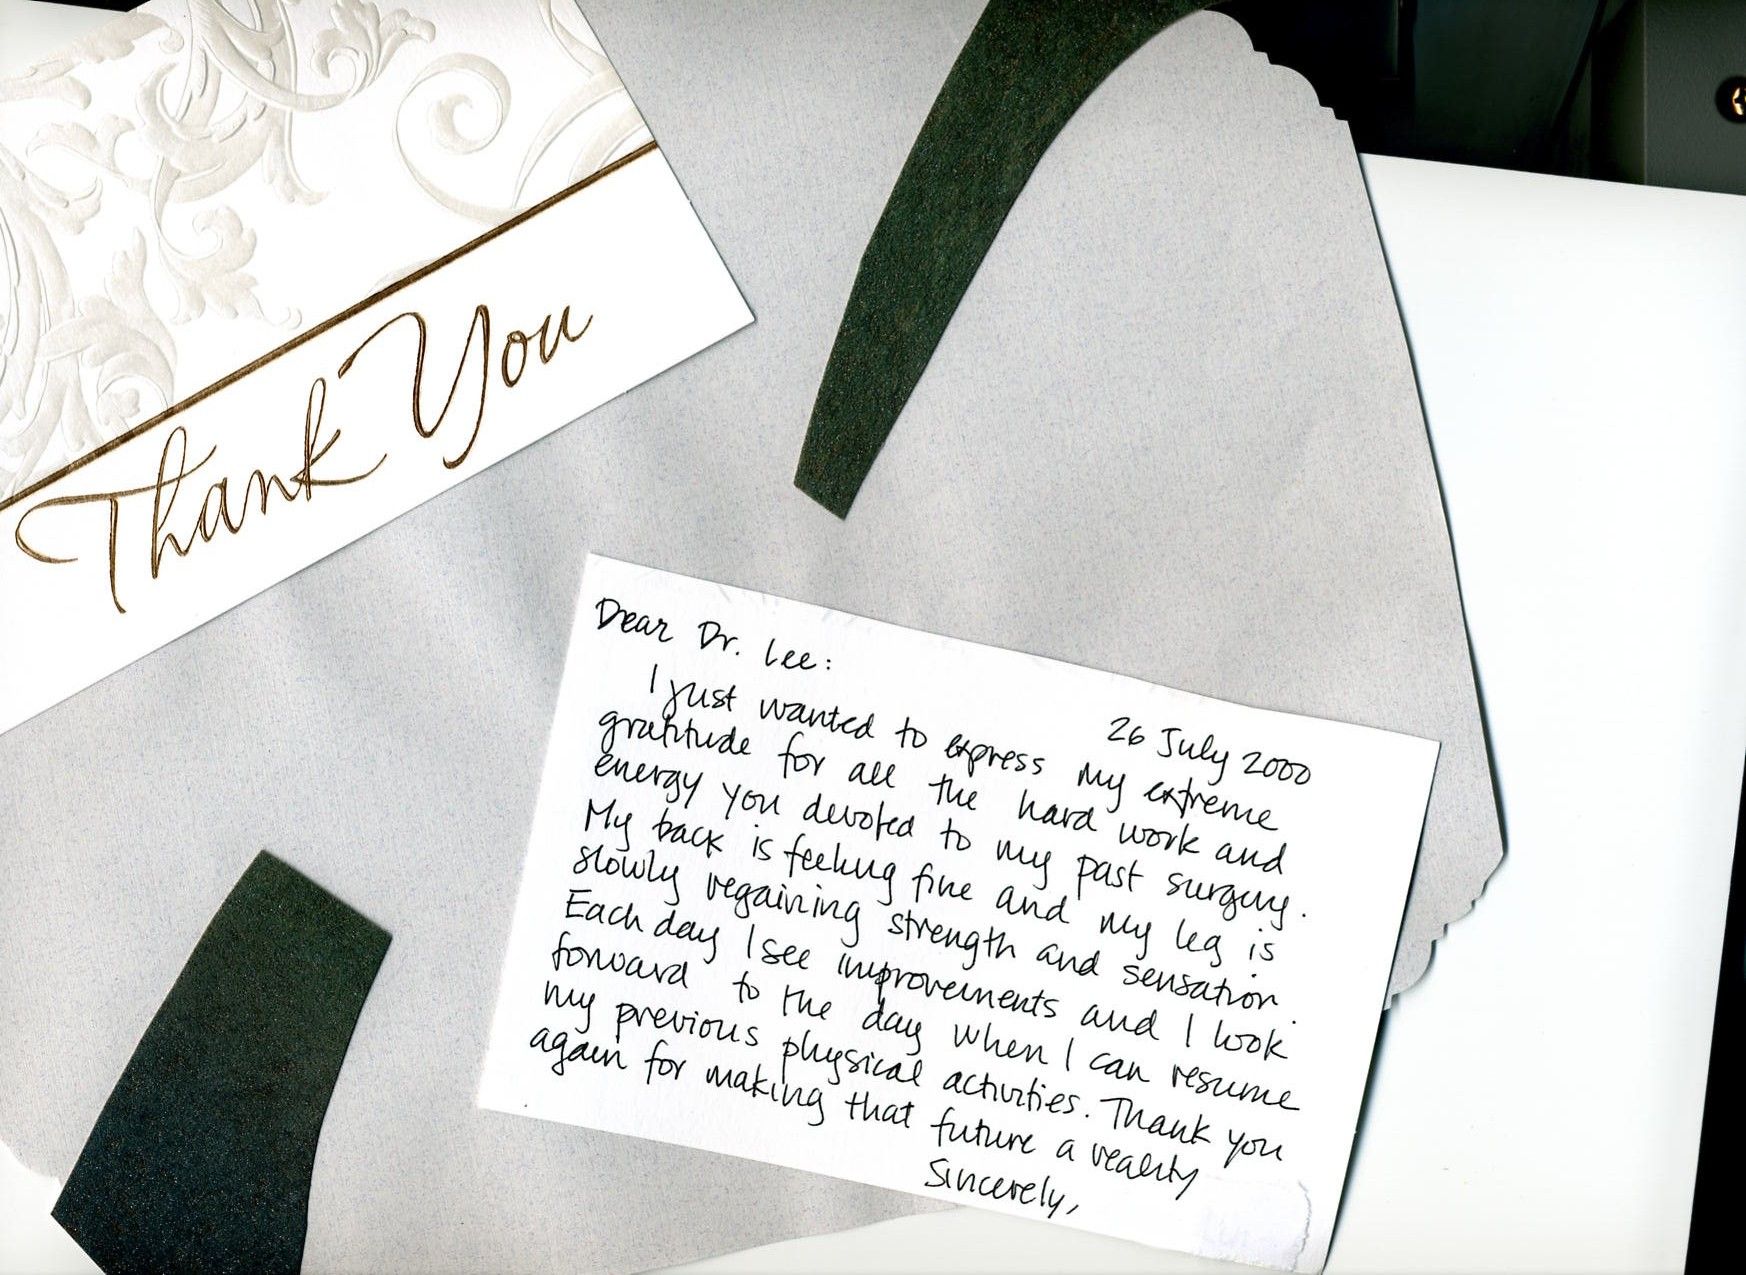 Thank You
Dear Dr. Lee:
26 July 2000
I just wanted to express my extreme
gratitude for all the hard work and
energy you devoted to my past surgury.
My back is feeling fine and my leg is
slowly regaining strength and sensation.
Each day I see improvements and I look
forward to the day when I can resume
my previous physical activities. Thank you
again for making that future a reality
Sincerely,